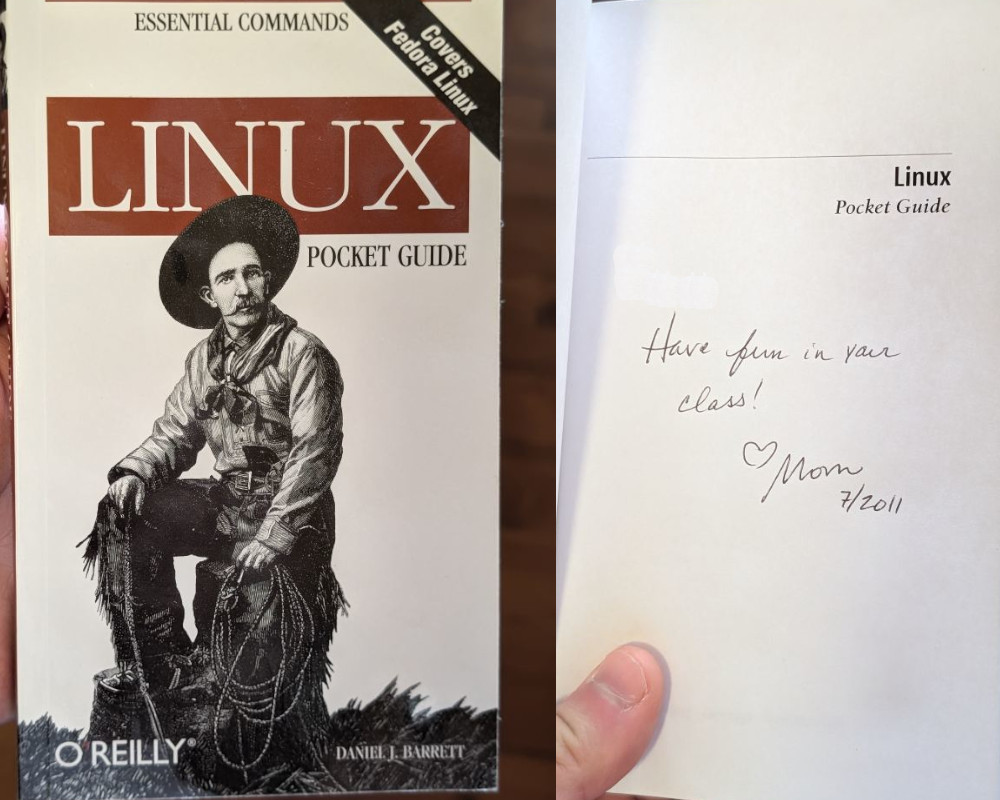 ESSENTIAL COMMANDS
Covers
Fedora Linux
LINUX
POCKET GUIDE
O'REILLY®
DANIEL J. BARRETT
Linux
Pocket Guide
Have fun in your
class!
♡ Mom
7/2011